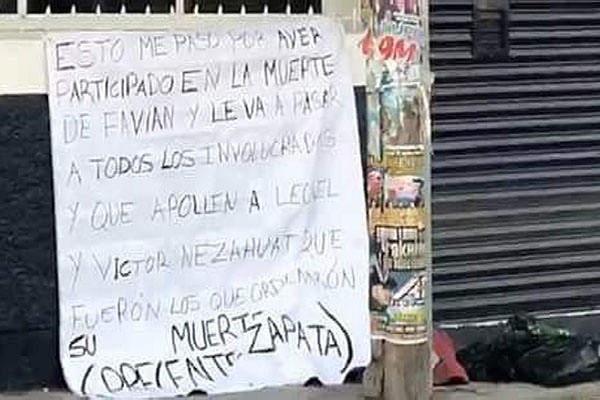 ESTO ME PASO POR AVER
PARTICIPADO EN LA MUERTE
DE FAVIAN Y LE VA A PASAR
A TODOS LOS INVOLUCRADOS
Y QUE APOLLEN A LECIEL
Y VICTOR NEZAHUAT QUE
FUERÓN LOS QUE ORDENARÓN
SU MUERTE
(ORIENTE ZAPATA)